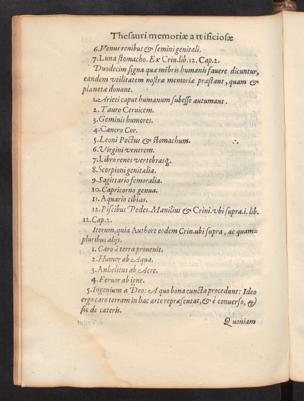 Thesauri memoriæ artificiosæ
6. Venus renibus & semini genitali.
7. Luna stomacho. Ex Crin.lib.12. Cap.2.
Duodecim signa quæ mēbris humanis fauere dicuntur,
eandem vtilitatem nostræ memoriæ præstant, quam &
planetæ donant.
1. Arieti caput humanum subesse autumant.
2. Tauro Ceruicem.
3. Geminis humeros.
4. Cancro Cor.
5. Leoni Pectus & stomachum.
6. Virgini ventrem.
7. Libræ renes vertebrasq.
8. Scorpioni genitalia.
9. Sagittario femoralia.
10. Capricorno genua.
11. Aquario tibias.
12. Piscibus Pedes. Manilius & Crini.vbi supra.i. lib.
12. Cap.2.
Iterum, quia Authore eodem Crin.ubi supra, ac quam-
pluribus alijs.
1. Caro à terra prouenit.
2. Humor ab Aqua.
3. Anhelitus ab Aere.
4. Feruor ab igne.
5. Ingenium a Deo: A quo bona cuncta procedunt: Ideo
ergo caro terram in hac arte repræsentat, & è conuerso, &
sic de cæteris.
Quoniam